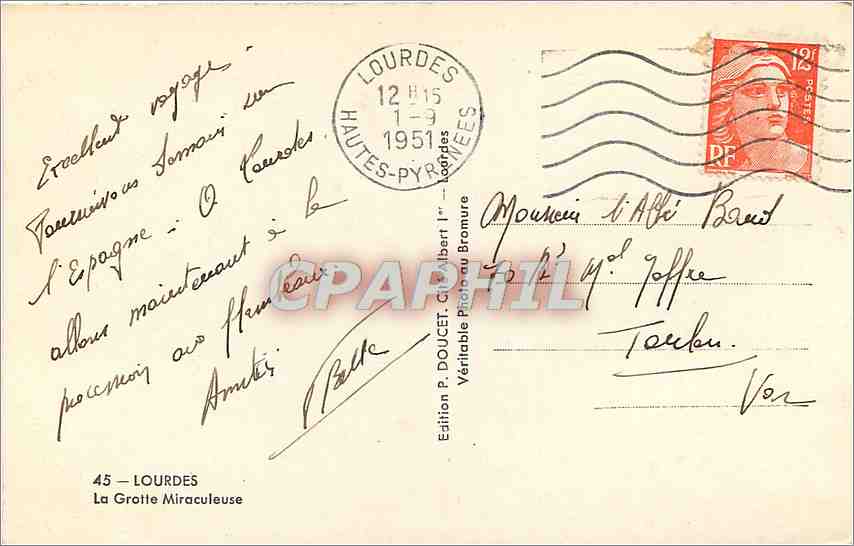 Excellent voyage.
Poursuivons demain sur
l'Espagne - O Lourdes.
allons maintenant à la
procession aux flambeaux
Amitiés
45 — LOURDES
La Grotte Miraculeuse
Edition P. DOUCET. Cité Albert Ier — Lourdes
Véritable Photo au Bromure
LOURDES
12 H15
1-9
1951
HAUTES-PYRENEES
12F
POSTES
RF
Monsieur l'Abbé
Bd Mal Joffre
Toulon.
Var
CPAPHIL